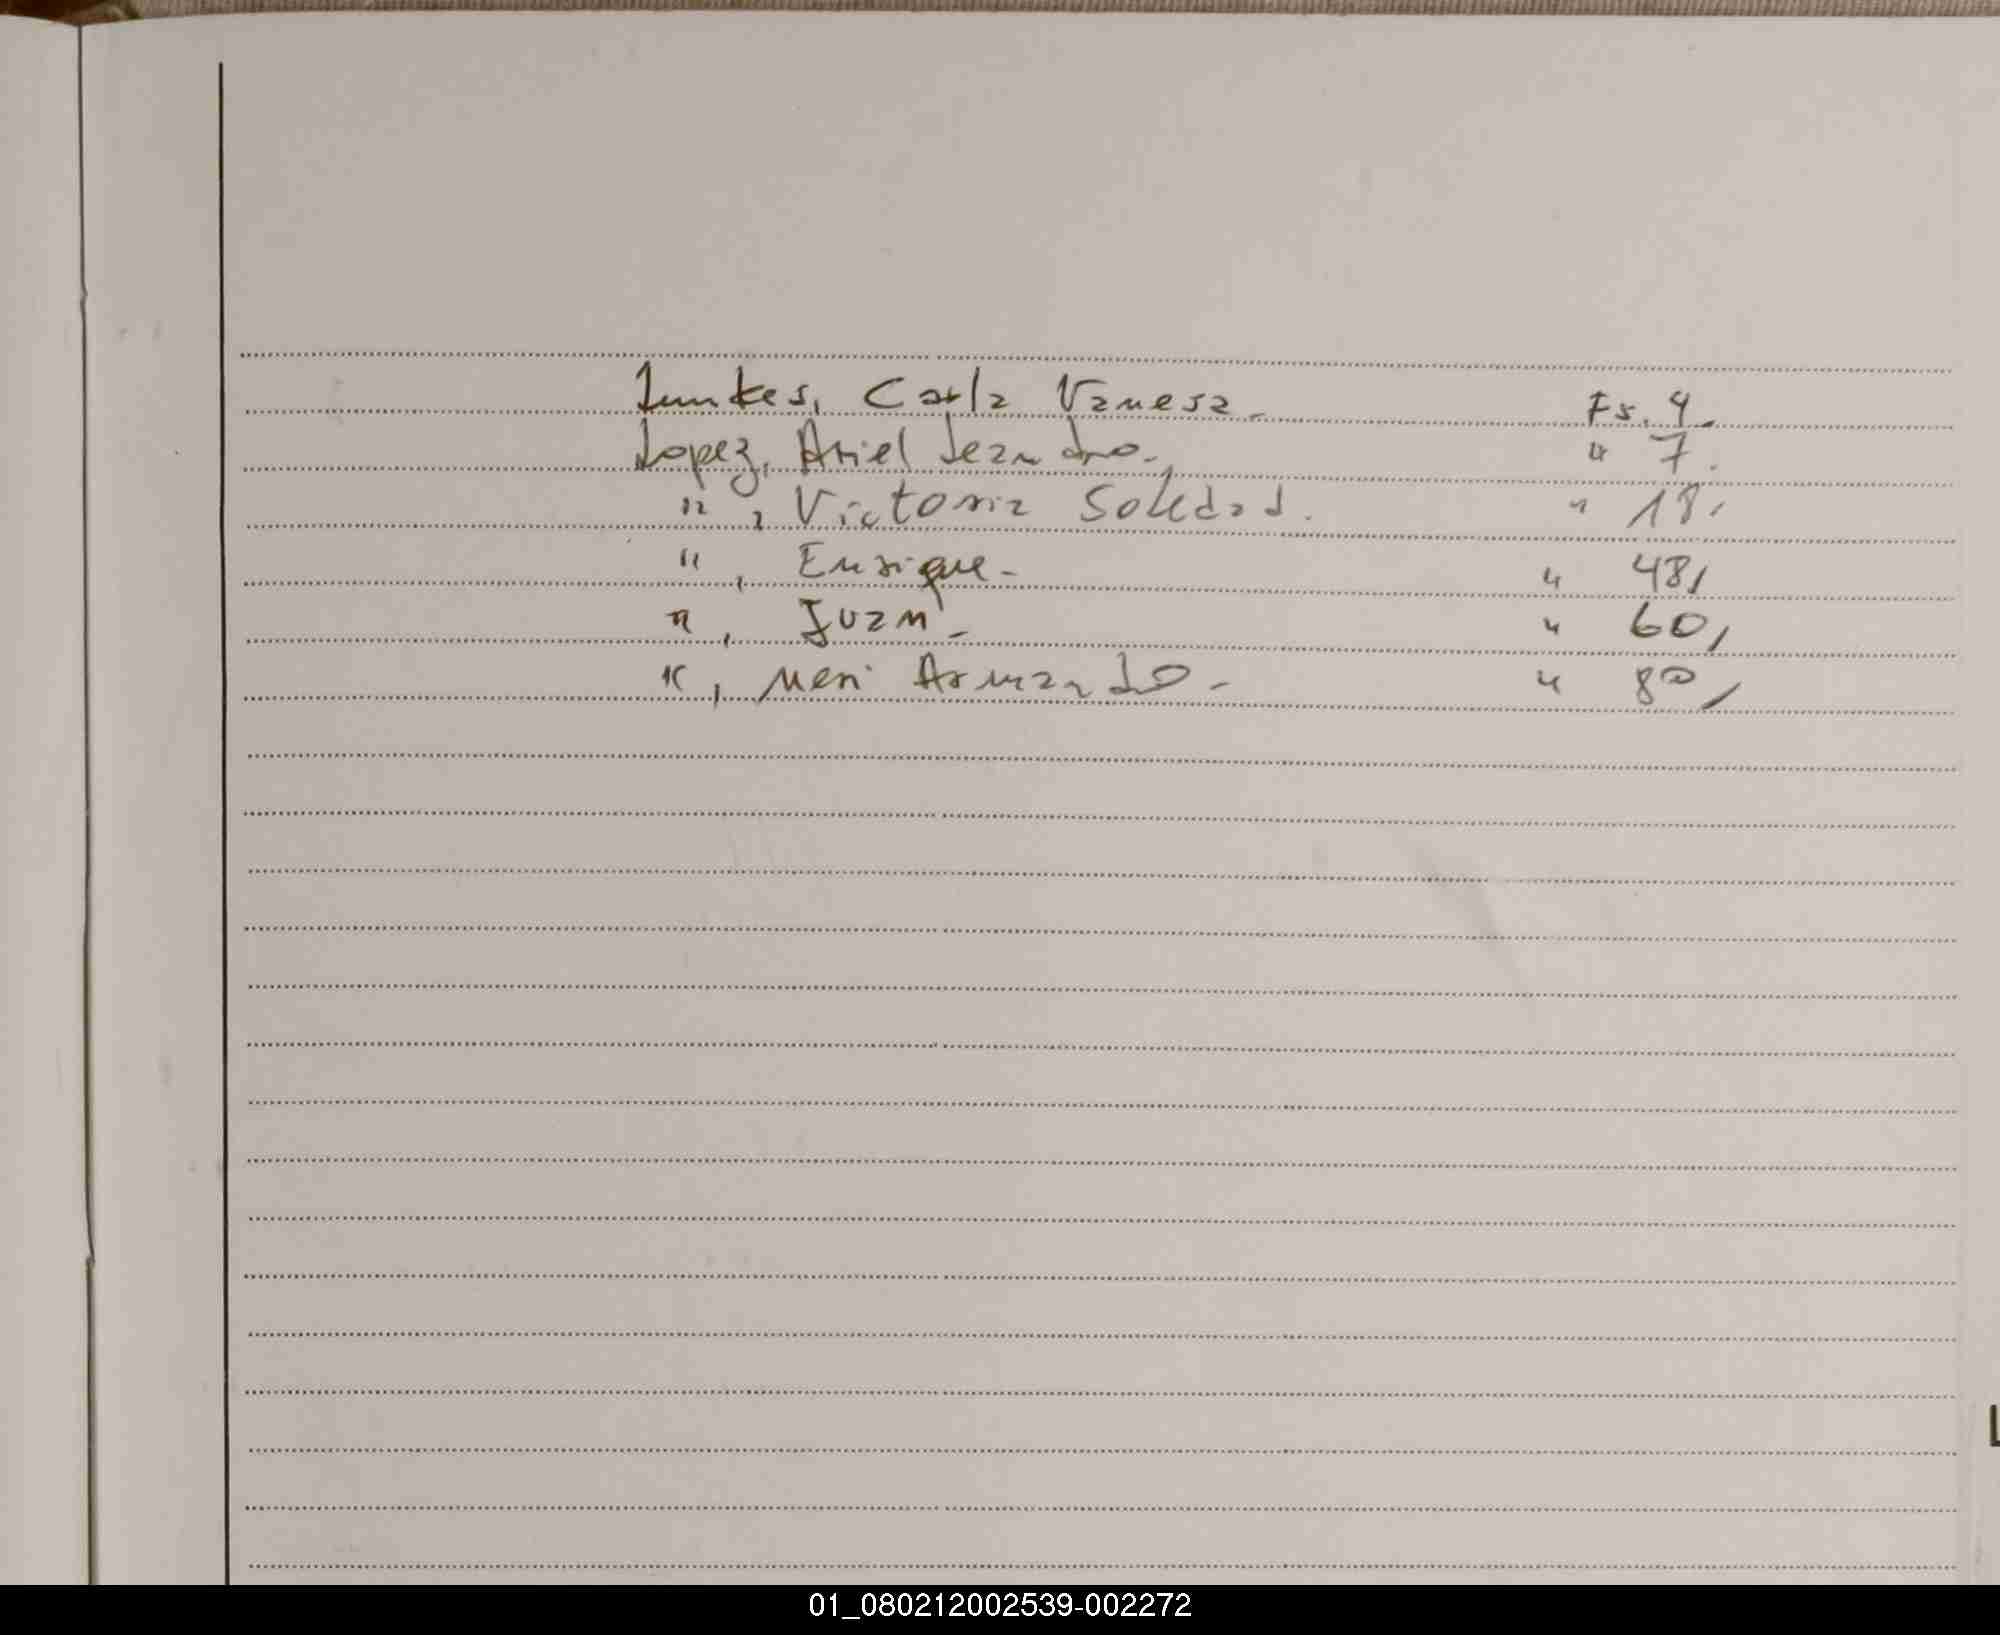 Lunkes, Carla Vanesa - Fs. 4.
Lopez, Ariel Leandro - " 7.
" , Victoria Soledad. " 18,
" , Enrique - " 48,
" , Juan - " 60,
" , Neri Armando - " 80,
L
01_080212002539-002272